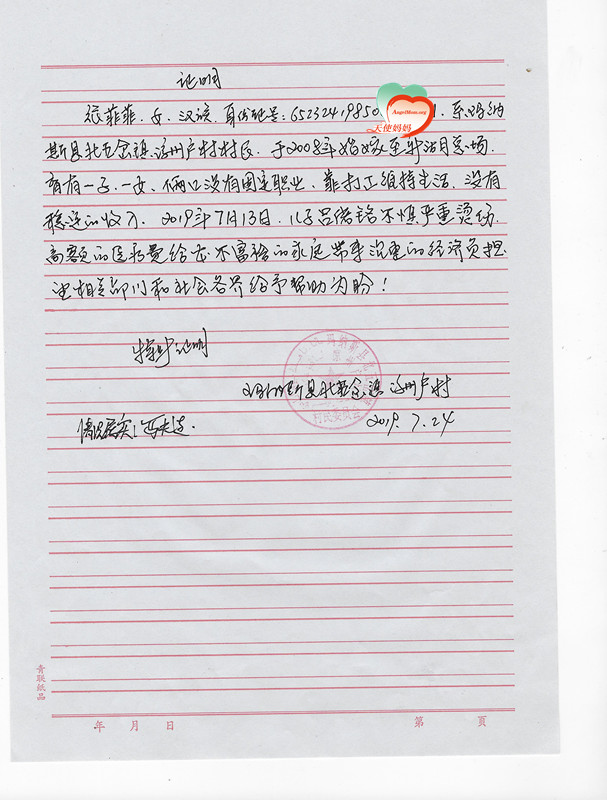 证明
张菲菲，女，汉族，身份证号：6523241985，系玛纳
AngelMom.org
天使妈妈
斯县北五岔镇沙州户村村民，于2008年婚嫁至新湖总场，
育有一子一女，俩口没有固定职业，靠打工维持生活，没有
稳定的收入，2019年7月13日，儿子吕绪铭不慎严重烫伤，
高额的医药费给本不富裕的家庭带来沉重的经济负担，
望相关部门和社会各界给予帮助为盼！
特此证明
玛纳斯县北五岔镇沙州户村
村民委员会
情况属实：
2019.7.24
青联纸品
年 月 日 第 页